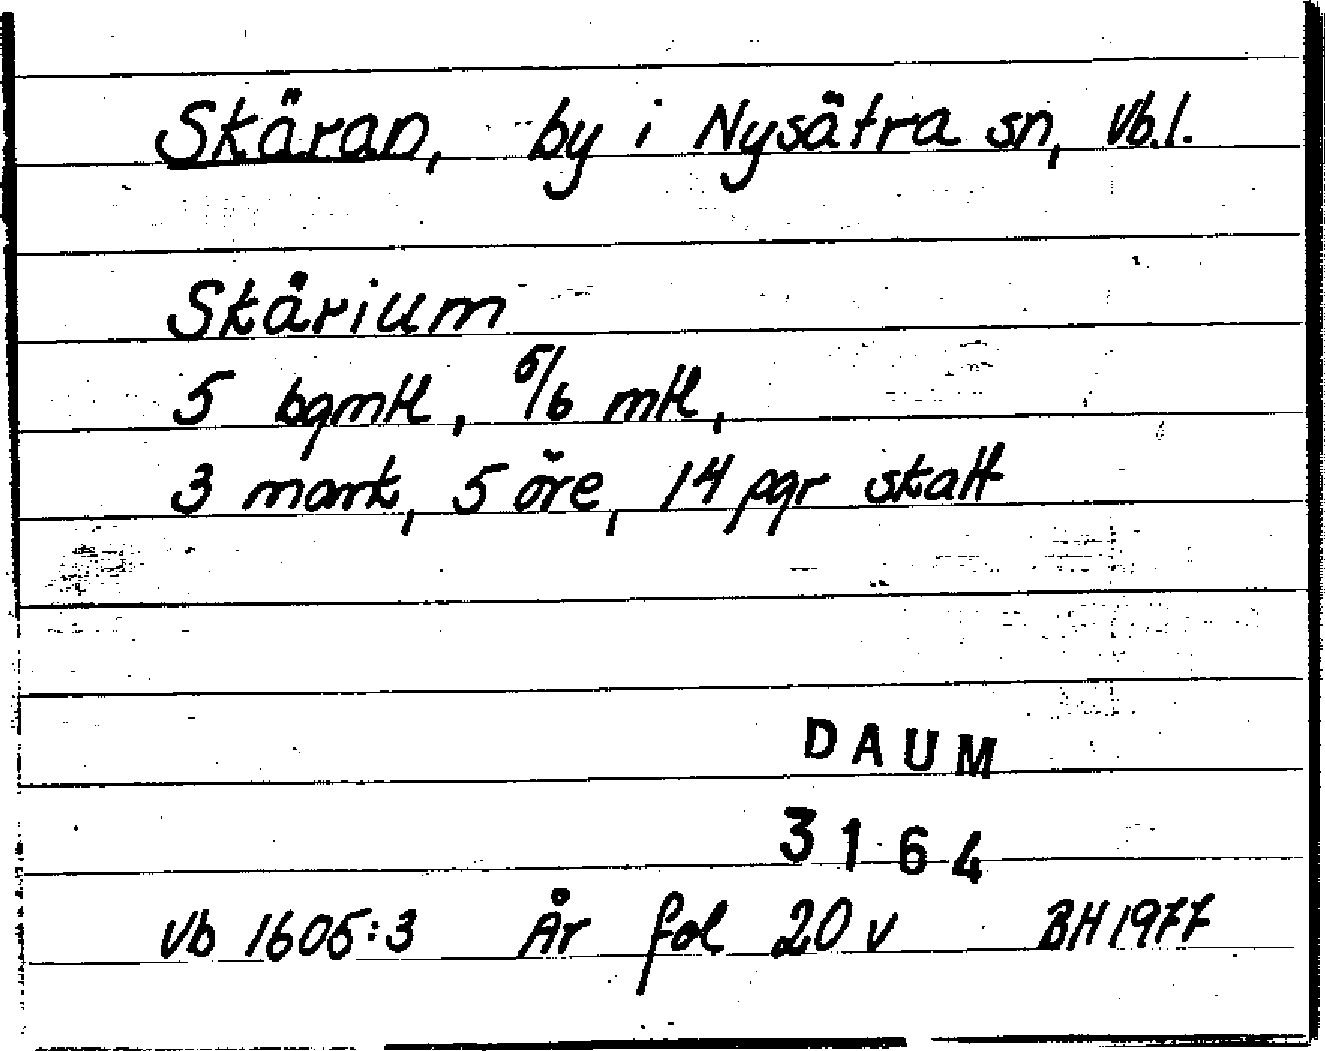 Skäran, by i Nysätra sn, Vb.l.
Skårium
5 bqmtl, 5/6 mtl,
3 mark, 5 öre, 14 pgr skatt
DAUM
3164
Vb 1605:3 År fol 20 v BH 1977